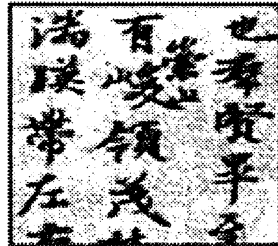 也羣賢畢至
有崇山峻領茂
湍暎帶左右